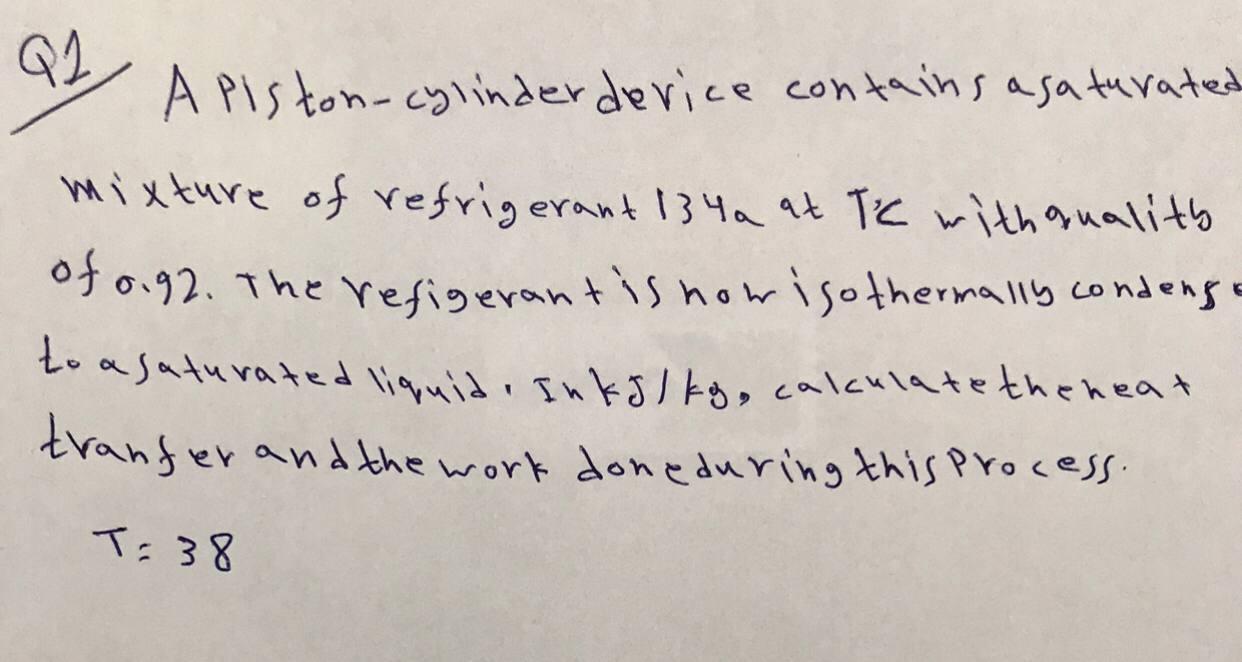 Q1
A Piston-cylinder device contains a saturated
mixture of refrigerant 134a at T°C with qualitb
of 0.92. The refigerant is now isothermally condense
to a saturated liquid. In kJ/kg, calculate the heat
tranfer and the work done during this Process.
T= 38